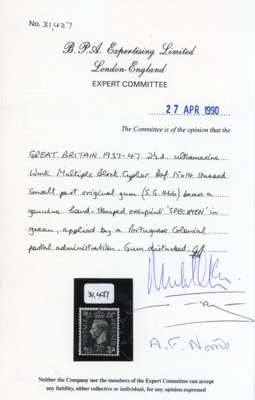 No. 31,427
B. P. A. Expertising Limited
London · England
EXPERT COMMITTEE
27 APR 1990
The Committee is of the opinion that the
GREAT BRITAIN 1937-47 2½d. ultramarine
Wmk Multiple Block Cypher Perf 15x14 Unused
small part original gum (S.G. 466) bears a
genuine hand-stamped overprint 'SPECIMEN' in
green, applied by a Portuguese Colonial
postal administration. Gum disturbed.
31,427
A. F. Norris
Neither the Company nor the members of the Expert Committee can accept
any liability, either collective or individual, for any opinion expressed